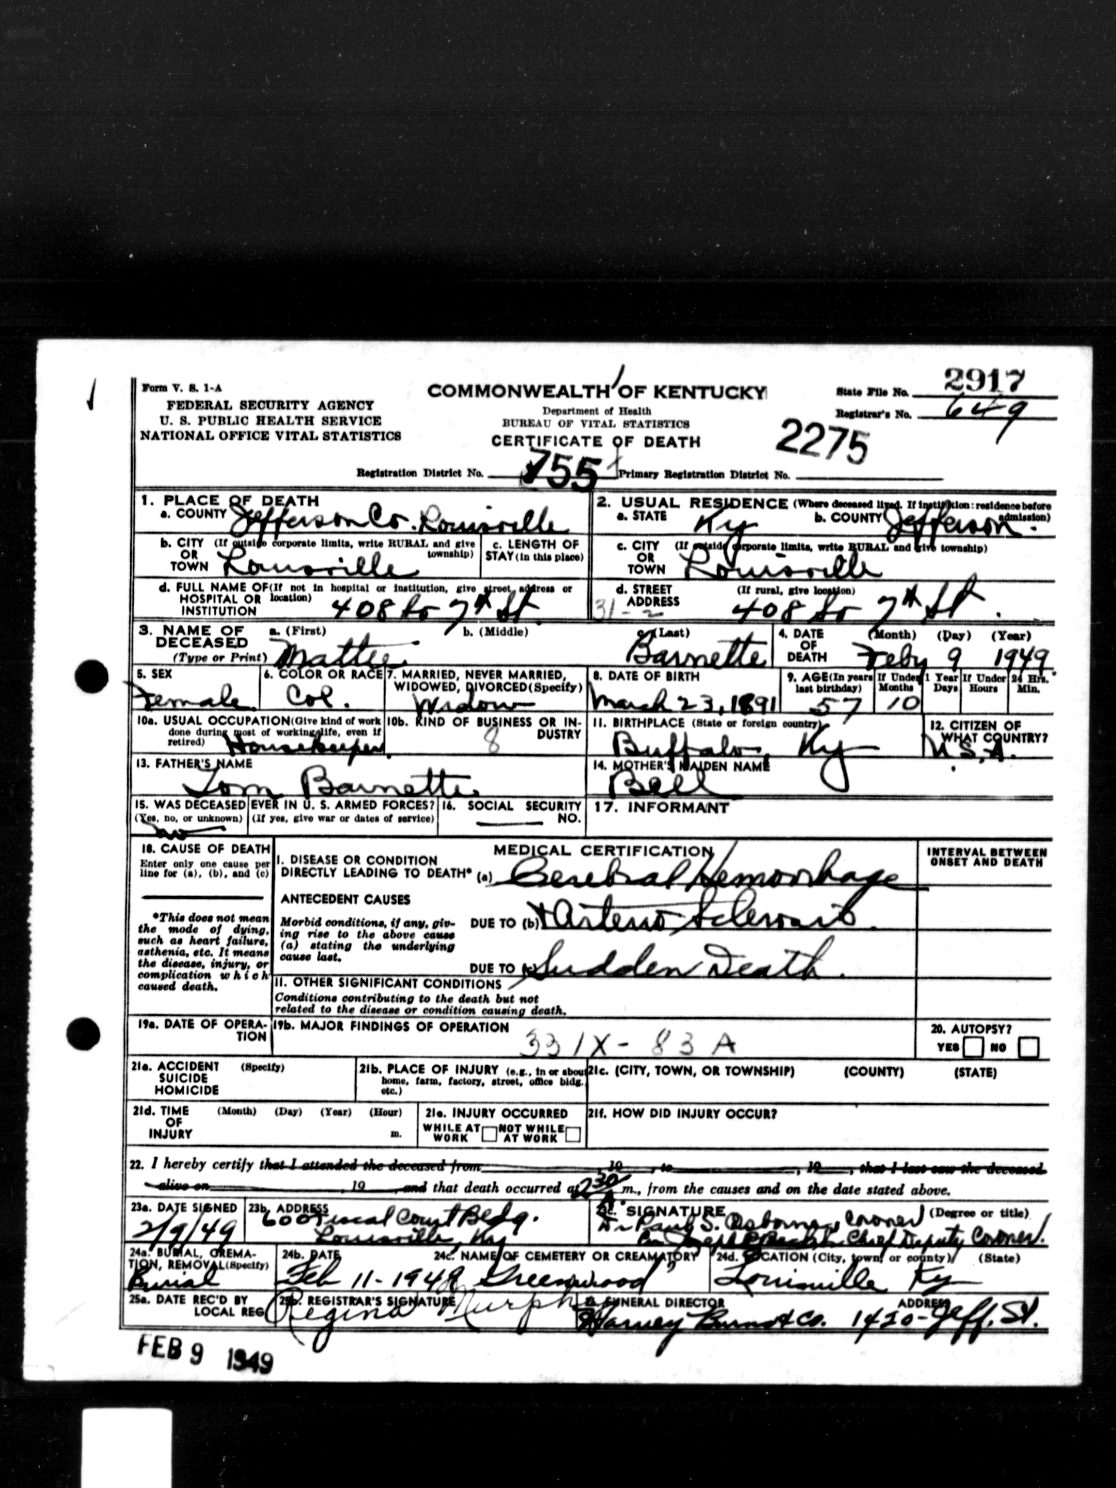 Form V. S. 1-A
FEDERAL SECURITY AGENCY
U. S. PUBLIC HEALTH SERVICE
NATIONAL OFFICE VITAL STATISTICS
COMMONWEALTH OF KENTUCKY
Department of Health
BUREAU OF VITAL STATISTICS
CERTIFICATE OF DEATH
State File No. 2917
Registrar's No. 649
2275
Registration District No. 755 Primary Registration District No.
1. PLACE OF DEATH
a. COUNTY Jefferson Co. Louisville
2. USUAL RESIDENCE (Where deceased lived. If institution: residence before admission)
a. STATE Ky b. COUNTY Jefferson
b. CITY (If outside corporate limits, write RURAL and give township) OR TOWN Louisville
c. LENGTH OF STAY (in this place)
c. CITY (If outside corporate limits, write RURAL and give township) OR TOWN Louisville
d. FULL NAME OF (If not in hospital or institution, give street address or location) HOSPITAL OR INSTITUTION 408 So 7th St
d. STREET ADDRESS (If rural, give location) 408 So 7th St.
31-2
3. NAME OF DECEASED (Type or Print) a. (First) Mattie b. (Middle) c. (Last) Barnette
4. DATE OF DEATH (Month) (Day) (Year) Feby 9 1949
5. SEX Female
6. COLOR OR RACE Col.
7. MARRIED, NEVER MARRIED, WIDOWED, DIVORCED (Specify) Widow
8. DATE OF BIRTH March 23, 1891
9. AGE (In years last birthday) 57 If Under 1 Year Months 10 Days If Under 24 Hrs. Hours Min.
10a. USUAL OCCUPATION (Give kind of work done during most of working life, even if retired) Housekeeper
10b. KIND OF BUSINESS OR INDUSTRY 8
11. BIRTHPLACE (State or foreign country) Buffalo Ky
12. CITIZEN OF WHAT COUNTRY? U.S.A.
13. FATHER'S NAME Tom Barnette
14. MOTHER'S MAIDEN NAME Bell
15. WAS DECEASED EVER IN U. S. ARMED FORCES? (Yes, no, or unknown) (If yes, give war or dates of service) no
16. SOCIAL SECURITY NO.
17. INFORMANT
18. CAUSE OF DEATH
Enter only one cause per line for (a), (b), and (c)
*This does not mean the mode of dying, such as heart failure, asthenia, etc. It means the disease, injury, or complication which caused death.
MEDICAL CERTIFICATION
INTERVAL BETWEEN ONSET AND DEATH
I. DISEASE OR CONDITION DIRECTLY LEADING TO DEATH* (a) Cerebral Hemorrhage
ANTECEDENT CAUSES
Morbid conditions, if any, giving rise to the above cause (a) stating the underlying cause last.
DUE TO (b) Arterio Sclerosis
DUE TO (c) Sudden Death.
II. OTHER SIGNIFICANT CONDITIONS
Conditions contributing to the death but not related to the disease or condition causing death.
19a. DATE OF OPERATION
19b. MAJOR FINDINGS OF OPERATION
331X - 83 A
20. AUTOPSY?
YES NO
21a. ACCIDENT SUICIDE HOMICIDE (Specify)
21b. PLACE OF INJURY (e.g., in or about home, farm, factory, street, office bldg. etc.)
21c. (CITY, TOWN, OR TOWNSHIP) (COUNTY) (STATE)
21d. TIME OF INJURY (Month) (Day) (Year) (Hour) m.
21e. INJURY OCCURRED
WHILE AT WORK NOT WHILE AT WORK
21f. HOW DID INJURY OCCUR?
22. I hereby certify that I attended the deceased from , 19 , to , 19 , that I last saw the deceased
alive on , 19 , and that death occurred at 2:30 A m., from the causes and on the date stated above.
23a. DATE SIGNED 2/9/49
23b. ADDRESS 600 Fiscal Court Bldg. Louisville, Ky
23c. SIGNATURE (Degree or title)
Dr Paul S. Osborne, Coroner
Chief Deputy Coroner.
24a. BURIAL, CREMATION, REMOVAL (Specify) Burial
24b. DATE Feb 11-1949
24c. NAME OF CEMETERY OR CREAMATORY Greenwood
24d. LOCATION (City, town, or county) (State) Louisville Ky
25a. DATE REC'D BY LOCAL REG.
25b. REGISTRAR'S SIGNATURE Regina Murphy
FUNERAL DIRECTOR ADDRESS
Harvey Burns & Co. 1420-Jeff. St.
FEB 9 1949